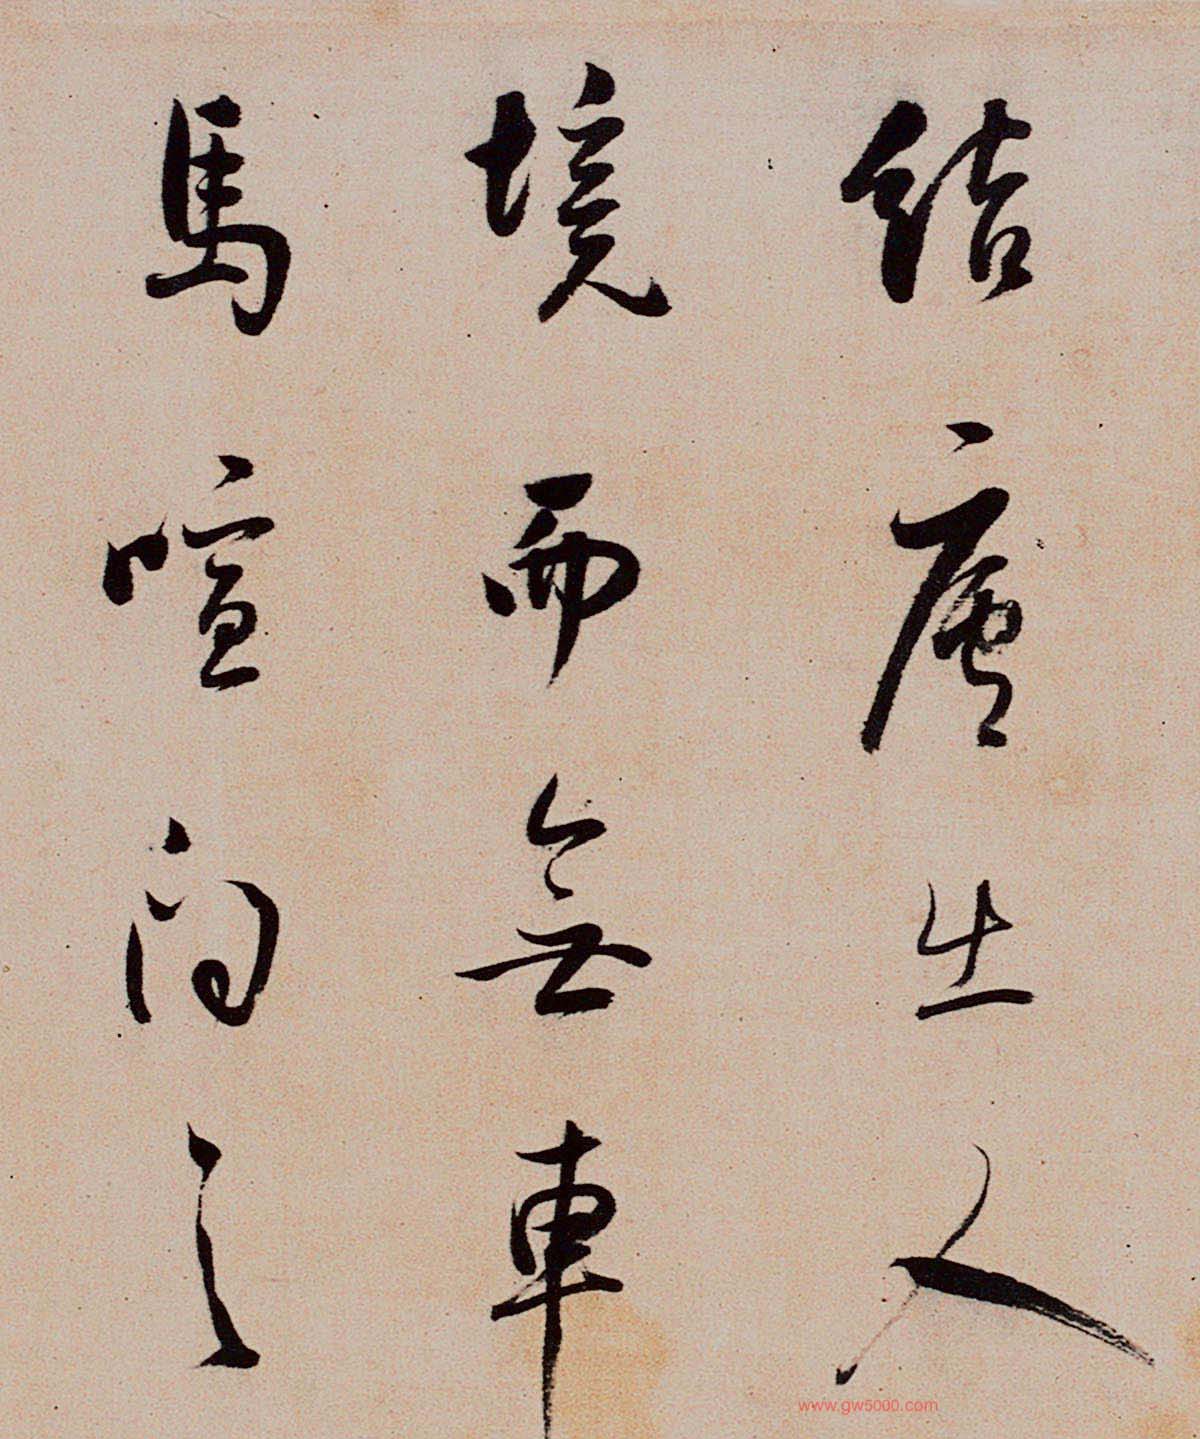 結廬在人
境而無車
馬喧問君
www.gw5000.com